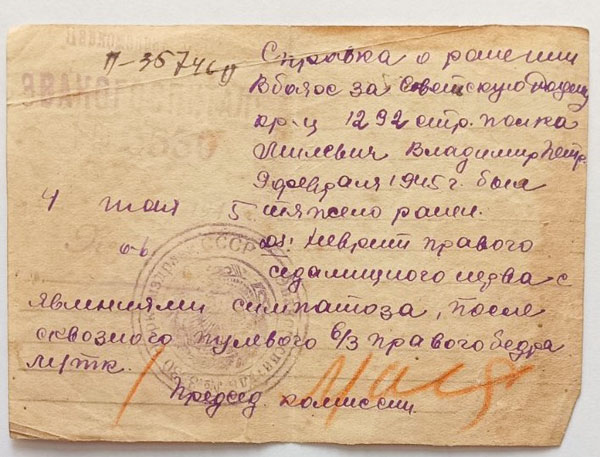 П-35746п
Справка о ранении
В боях за Советскую Родину
кр-ц 1292 стр. полка
Милевич Владимир Петр.
9 февраля 1945 г. был
4 мая 5 тяжело ранен.
Неврит правого
седалищного нерва с
явлениями симпатоза, после
сквозного пулевого о/з правого бедра
м/тк.
Председ. комиссии
СССР